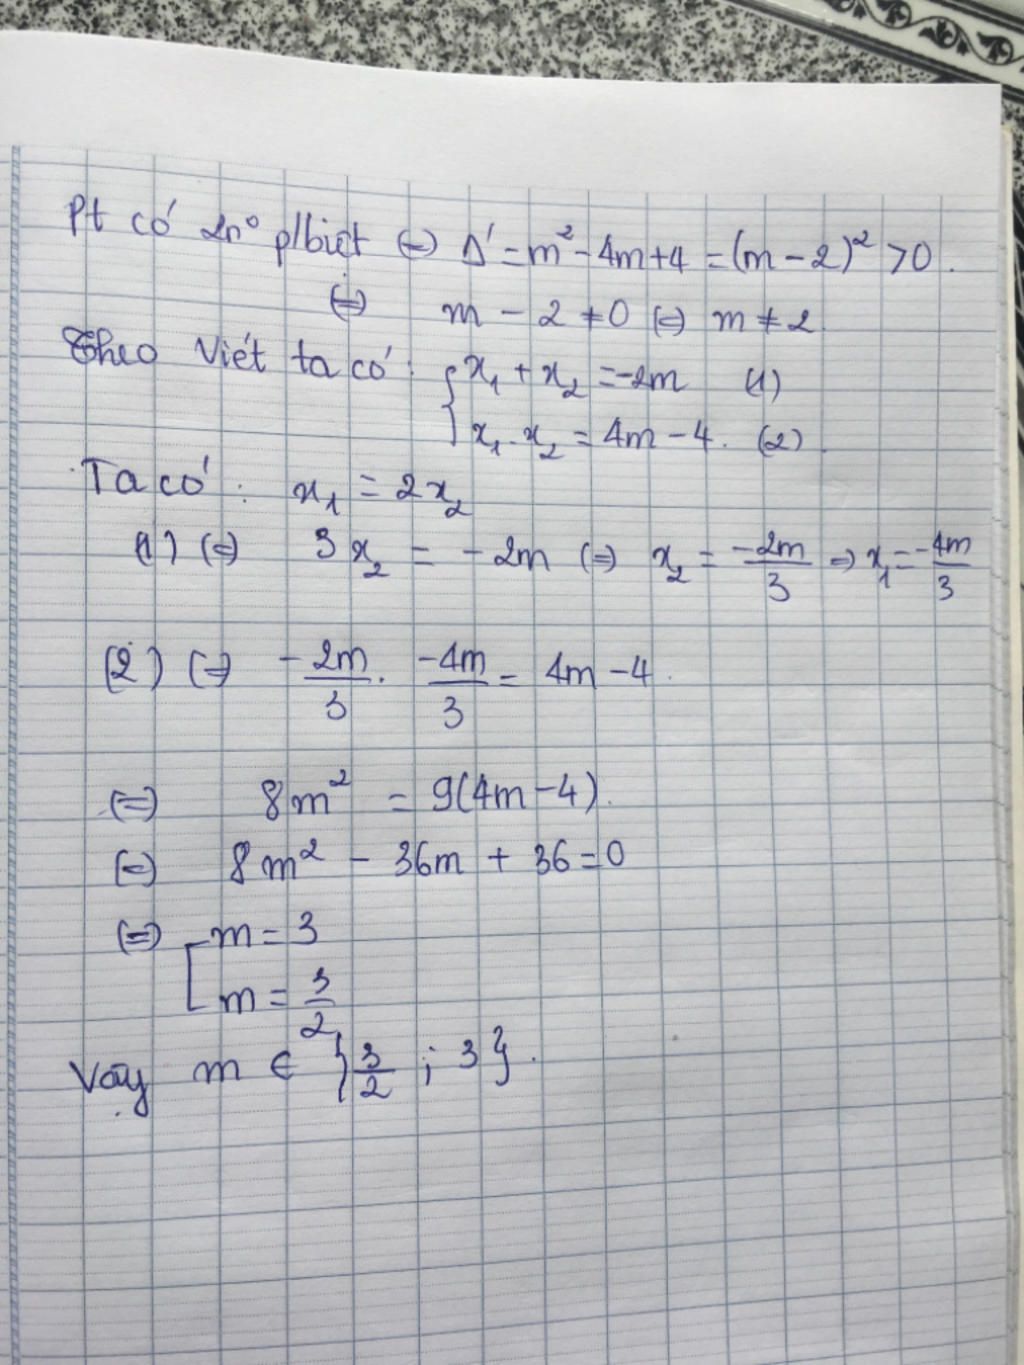 Pt có 2n° p/biệt (=) Δ' = m² - 4m + 4 = (m - 2)² > 0.
(=) m - 2 ≠ 0 (=) m ≠ 2.
Theo Viét ta có: { x₁ + x₂ = -2m (1)
x₁ . x₂ = 4m - 4. (2).
Ta có: x₁ = 2x₂
(1) (=) 3x₂ = -2m (=) x₂ = -2m/3 => x₁ = -4m/3
(2) (=) -2m/3 . -4m/3 = 4m - 4.
(=) 8m² = 9(4m - 4).
(=) 8m² - 36m + 36 = 0
(=) [ m = 3
m = 3/2
Vậy m ∈ {3/2 ; 3}.